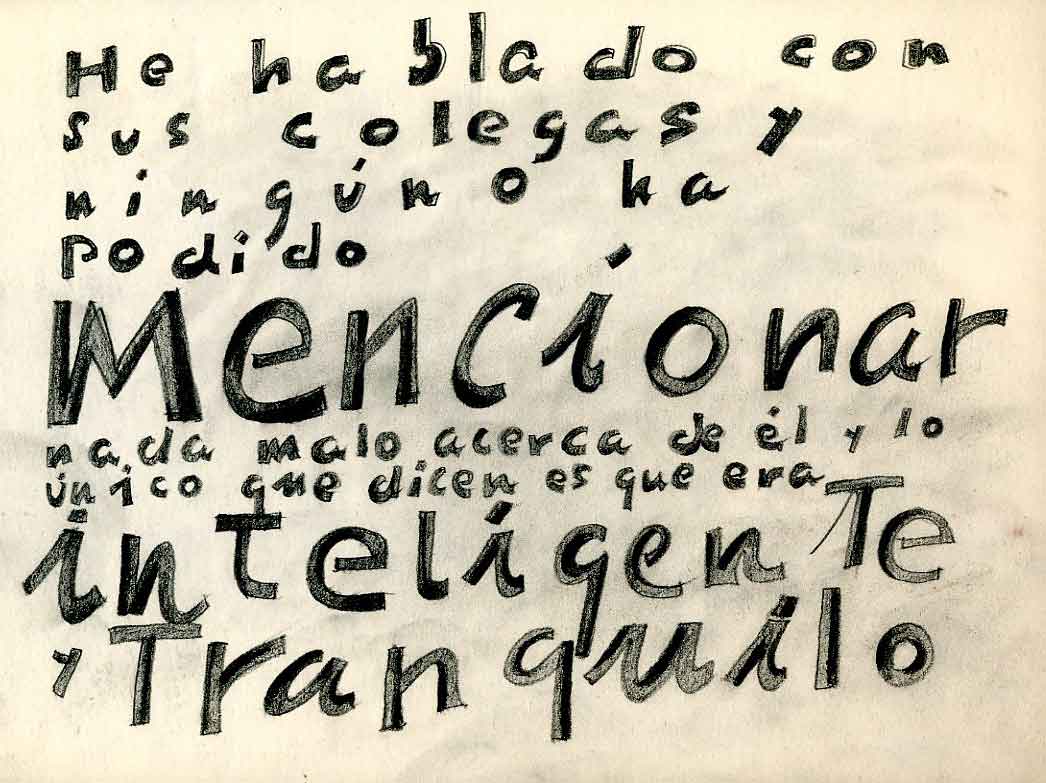 He hablado con
sus colegas y
ningúno ha
podido
Mencionar
nada malo acerca de él y lo
único que dicen es que era
inteligenTe
y Tranquilo